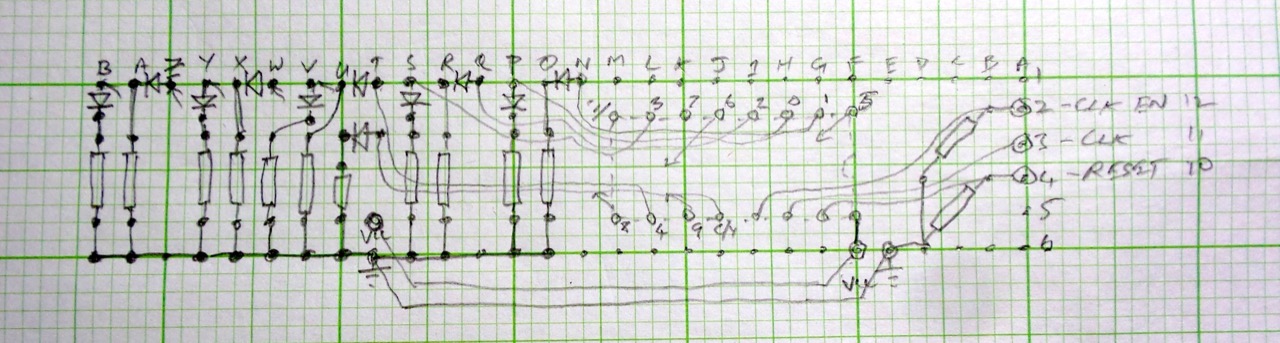 B A Z Y X W V U T S R Q P O N M L K J I H G F E D C B A 1
1/ 3 7 6 2 0 1 5 2 - CLK EN 12
3 - CLK 11
4 - RESET 10
8 4 9 5
6